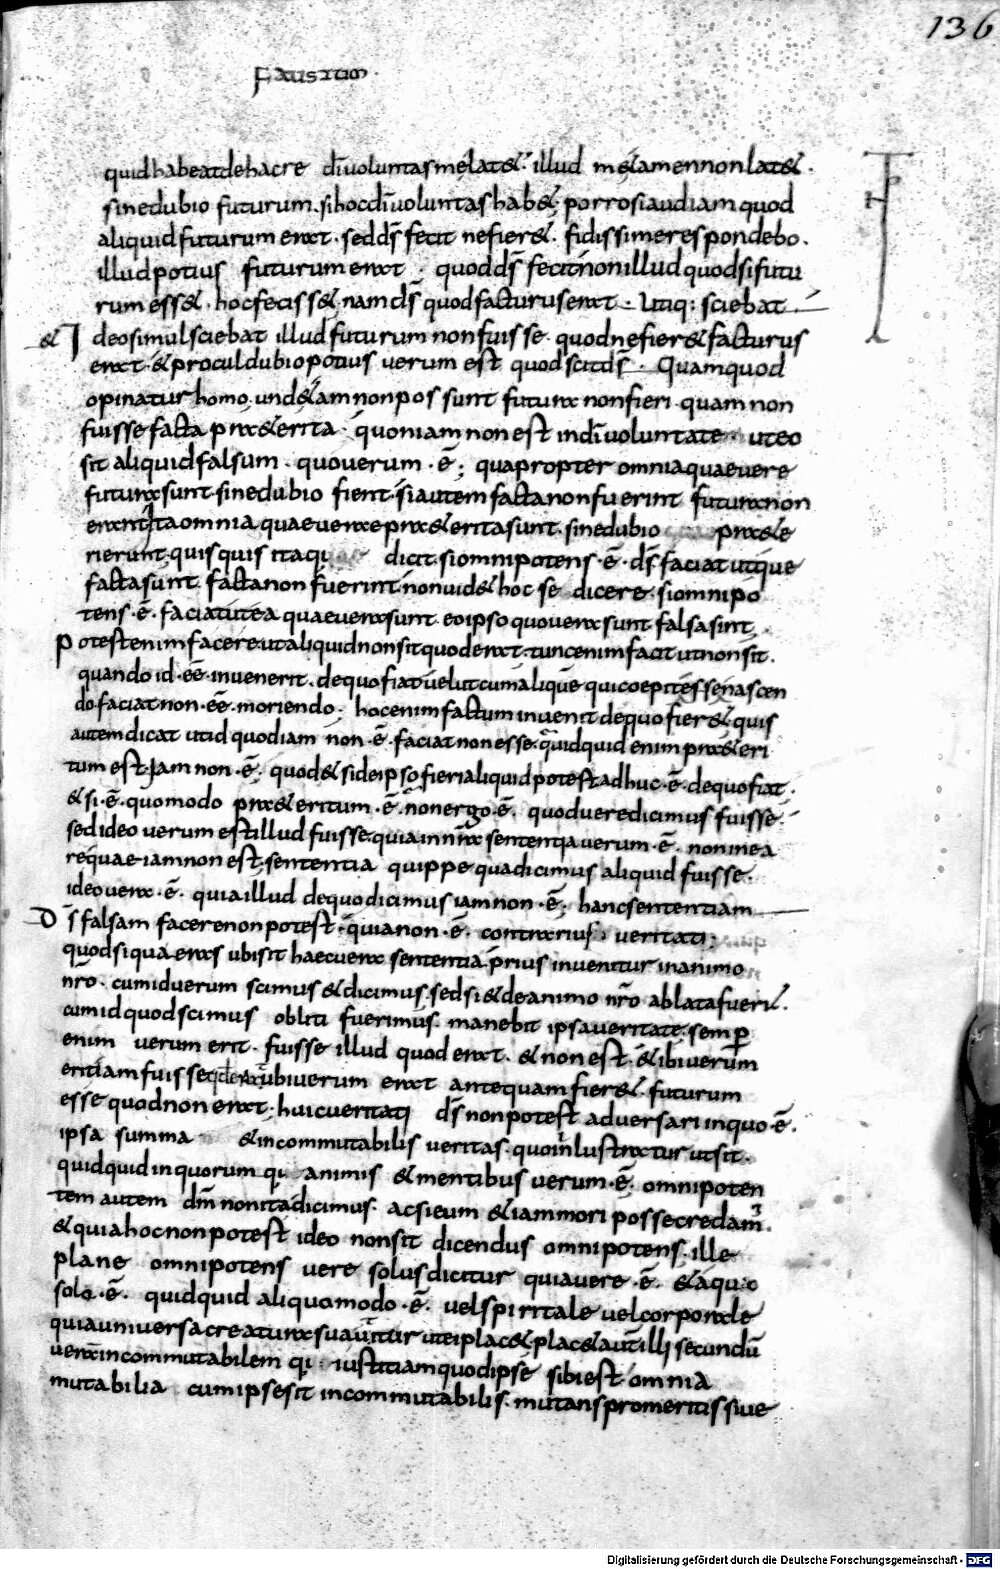 136
Faustum
quid habeat de hac re dī voluntas me lat& · illud m& tamen non lat& ·
sine dubio futurum · si hoc dī voluntas hab& · porro si audiam quod
aliquid futurum erat · sed dS fecit ne fier& · fidissime respondebo ·
illud potius futurum erat · quod dS fecit non illud quod si futu
rum ess& · hoc feciss& · nam dS quod facturus erat · Utiq: sciebat
& I deo simul sciebat illud futurum non fuisse · quod ne fier& facturus
erat · & procul dubio potius verum est quod scit dS · Quam quod
opinatur homo · und& iam non possunt futura non fieri · quam non
fuisse facta pra&erita · quoniam non est in dī voluntate · ut eo
sit aliquid falsum · quo verum · ē ; quapropter omnia quae vere
futura sunt · sine dubio fient · si autem facta non fuerint futura non
erant · Ita omnia quae vere pra&erita sunt · sine dubio pra&e
rierunt · quisquis itaq: dicit · si omnipotens · ē · dS faciat ut que
facta sunt · facta non fuerint · non vid& hoc se dicere · si omnipo
tens · ē · faciat ut ea quae vera sunt · eo ipso quo vera sunt falsa sint ·
Potest enim facere ut aliquid non sit quod erat · tunc enim facit ut non sit ·
quando id · eē · invenerit · de quo fiat · velut cum aliquē qui coepit eē nascen
do faciat non · eē · moriendo · hoc enim factum invenit de quo fier& quis
autem dicat ut id quod iam non · ē · faciat non esse · quidquid enim pra&eri
tum est · Iam non · ē · quod & si de ipso fieri aliquid potest adhuc · ē · de quo fiat ·
& si · ē · quomodo pra&eritum · ē · non ergo · ē · quod vere dicimus fuisse ·
sed ideo verum est illud fuisse · quia in nr̄a sententia verum · ē · non in ea
re quae iam non est · sententia quippe qua dicimus aliquid fuisse ·
ideo vera · ē · quia illud de quo dicimus iam non · ē · hanc sententiam
D S falsam facere non potest · quia non · ē · contrarius veritati ;
quod si quaeras ubi sit haec vera sententia prius invenitur in animo
nr̄o · cum id verum scimus & dicimus · sed si & de animo nr̄o ablata fueri& ·
cum id quod scimus obliti fuerimus · manebit ipsa veritate · semp
enim verum erit · fuisse illud quod erat · & non est · & ibi verum
erit iam fuisse ubi verum erat antequam fier& futurum
esse quod non erat · huic veritati dS non potest adversari in quo · ē ·
ipsa summa & incommutabilis veritas · quo inlustratur ut sit ·
quidquid in quorum q: animis & mentibus verum · ē · omnipoten
tem autem dm̄ non ita dicimus · ac si eum & iam mori posse credam3 ·
& quia hoc non potest ideo non sit dicendus omnipotens · ille
plane omnipotens vere solus dicitur qui a vere · ē · & a quo
solo · ē · quidquid aliquo modo · ē · vel spiritale vel corporale
quia universa creatura sua utitur ut ei plac& plac& aut illi secundū
vera incommutabilem q: iustitiam quod ipse sibi est omnia
mutabilia cum ipse sit incommutabilis · mutans pro meritis sive
Digitalisierung gefördert durch die Deutsche Forschungsgemeinschaft · DFG